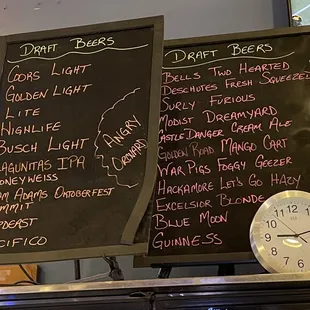 Draft Beers
Coors Light
Golden Light
Lite
Highlife
Busch Light
Lagunitas IPA
Honeyweiss
Sam Adams Oktoberfest
Summit
Cifico
Angry
Orchard
Draft Beers
Bells Two Hearted
Deschutes Fresh Squeezed
Surly Furious
Modist Dreamyard
Castle Danger Cream Ale
Golden Road Mango Cart
War Pigs Foggy Geezer
Hackamore Let's Go Hazy
Excelsior Blonde
Blue Moon
Guinness